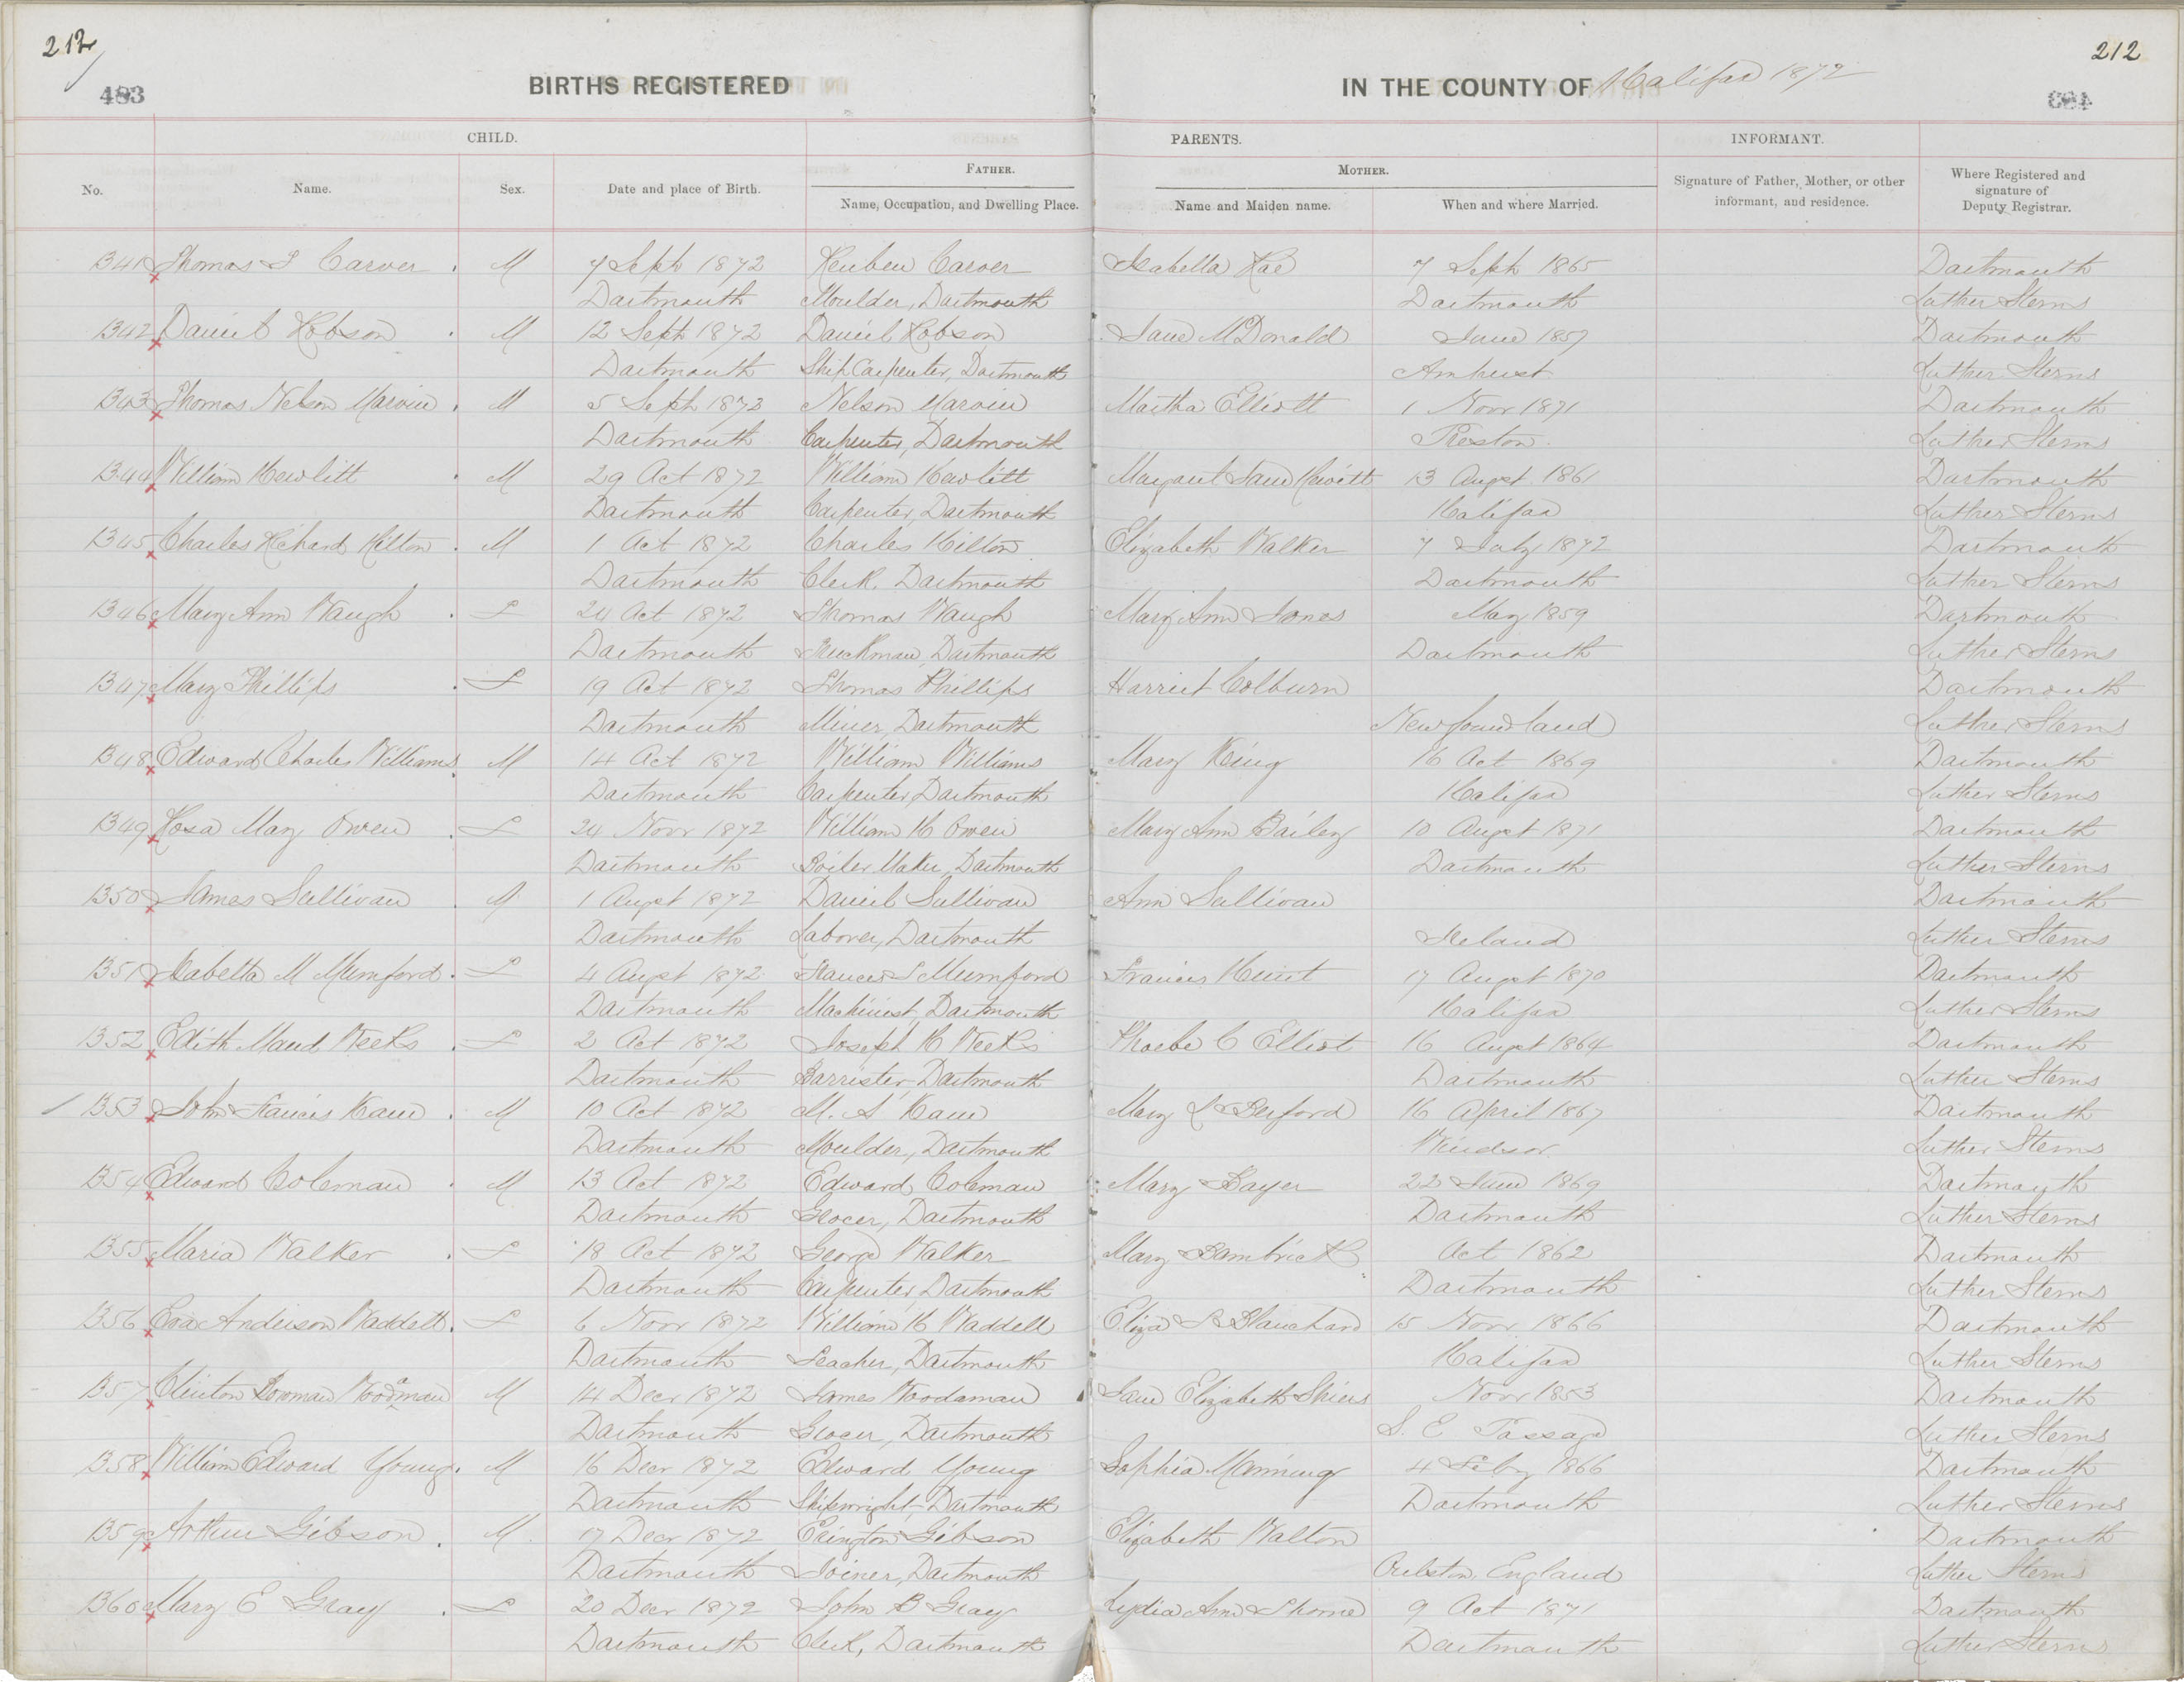 212 212
483 BIRTHS REGISTERED IN THE COUNTY OF Halifax 1872 483
CHILD. PARENTS. INFORMANT.
No. Name. Sex. Date and place of Birth. FATHER. Name, Occupation, and Dwelling Place. MOTHER. Name and Maiden name. When and where Married. Signature of Father, Mother, or other informant, and residence. Where Registered and signature of Deputy Registrar.
1341 Thomas S Carver M 7 Sept 1872 Reuben Carver Isabella Rae 7 Sept 1865 Dartmouth
Dartmouth Moulder, Dartmouth Dartmouth Luther Sterns
1342 Daniel Robson M 12 Sept 1872 Daniel Robson Jane McDonald June 1857 Dartmouth
Dartmouth Ship Carpenter, Dartmouth Amherst Luther Sterns
1343 Thomas Nelson Marvin M 5 Sept 1872 Nelson Marvin Martha Elliott 1 Novr 1871 Dartmouth
Dartmouth Carpenter, Dartmouth Preston Luther Sterns
1344 William Hewlitt M 29 Oct 1872 William Hewlitt Margaret Jane Hewitt 13 Augst 1861 Dartmouth
Dartmouth Carpenter, Dartmouth Halifax Luther Sterns
1345 Charles Richard Hilton M 1 Oct 1872 Charles Hilton Elizabeth Walker 7 July 1872 Dartmouth
Dartmouth Clerk, Dartmouth Dartmouth Luther Sterns
1346 Mary Ann Waugh F 24 Oct 1872 Thomas Waugh Mary Ann Jones May 1859 Dartmouth
Dartmouth Truckman, Dartmouth Dartmouth Luther Sterns
1347 Mary Phillips F 19 Oct 1872 Thomas Phillips Harriet Colburn Dartmouth
Dartmouth Miner, Dartmouth Newfoundland Luther Sterns
1348 Edward Charles Williams M 14 Oct 1872 William Williams Mary King 16 Oct 1869 Dartmouth
Dartmouth Carpenter, Dartmouth Halifax Luther Sterns
1349 Rosa Mary Owen F 24 Novr 1872 William H Owen Mary Ann Bailey 10 Augst 1871 Dartmouth
Dartmouth Boiler Maker, Dartmouth Dartmouth Luther Sterns
1350 James Sullivan M 1 Augst 1872 Daniel Sullivan Ann Sullivan Dartmouth
Dartmouth Laborer, Dartmouth Ireland Luther Sterns
1351 Isabella M Mumford F 4 Augst 1872 Francis S Mumford Frances Hunt 17 Augst 1870 Dartmouth
Dartmouth Machinist, Dartmouth Halifax Luther Sterns
1352 Edith Maud Weeks F 2 Oct 1872 Joseph H Weeks Phoebe C Elliot 16 Augst 1864 Dartmouth
Dartmouth Barrister, Dartmouth Dartmouth Luther Sterns
1353 John Francis Kane M 10 Oct 1872 M. A Kane Mary L 16 April 1867 Dartmouth
Dartmouth Moulder, Dartmouth Windsor Luther Sterns
1354 Edward Coleman M 13 Oct 1872 Edward Coleman Mary Bayer 22 June 1869 Dartmouth
Dartmouth Grocer, Dartmouth Dartmouth Luther Sterns
1355 Maria Walker F 18 Oct 1872 George Walker Mary Bambrick Oct 1862 Dartmouth
Dartmouth Carpenter, Dartmouth Dartmouth Luther Sterns
1356 Eva Anderson Waddell F 6 Novr 1872 William H Waddell Eliza S Blanchard 15 Novr 1866 Dartmouth
Dartmouth Teacher, Dartmouth Halifax Luther Sterns
1357 Clinton Bowman Woodaman M 14 Decr 1872 James Woodaman Jane Elizabeth Shiers Novr 1853 Dartmouth
Dartmouth Grocer, Dartmouth S. E Passage Luther Sterns
1358 William Edward Young M 16 Decr 1872 Edward Young Sophia Manning 4 Feby 1866 Dartmouth
Dartmouth Shipwright, Dartmouth Dartmouth Luther Sterns
1359 Arthur Gibson M 17 Decr 1872 Erington Gibson Elizabeth Walton Dartmouth
Dartmouth Joiner, Dartmouth England Luther Sterns
1360 Mary E Gray F 20 Decr 1872 John B Gray Lydia Ann Thorne 9 Oct 1871 Dartmouth
Dartmouth Clerk, Dartmouth Dartmouth Luther Sterns